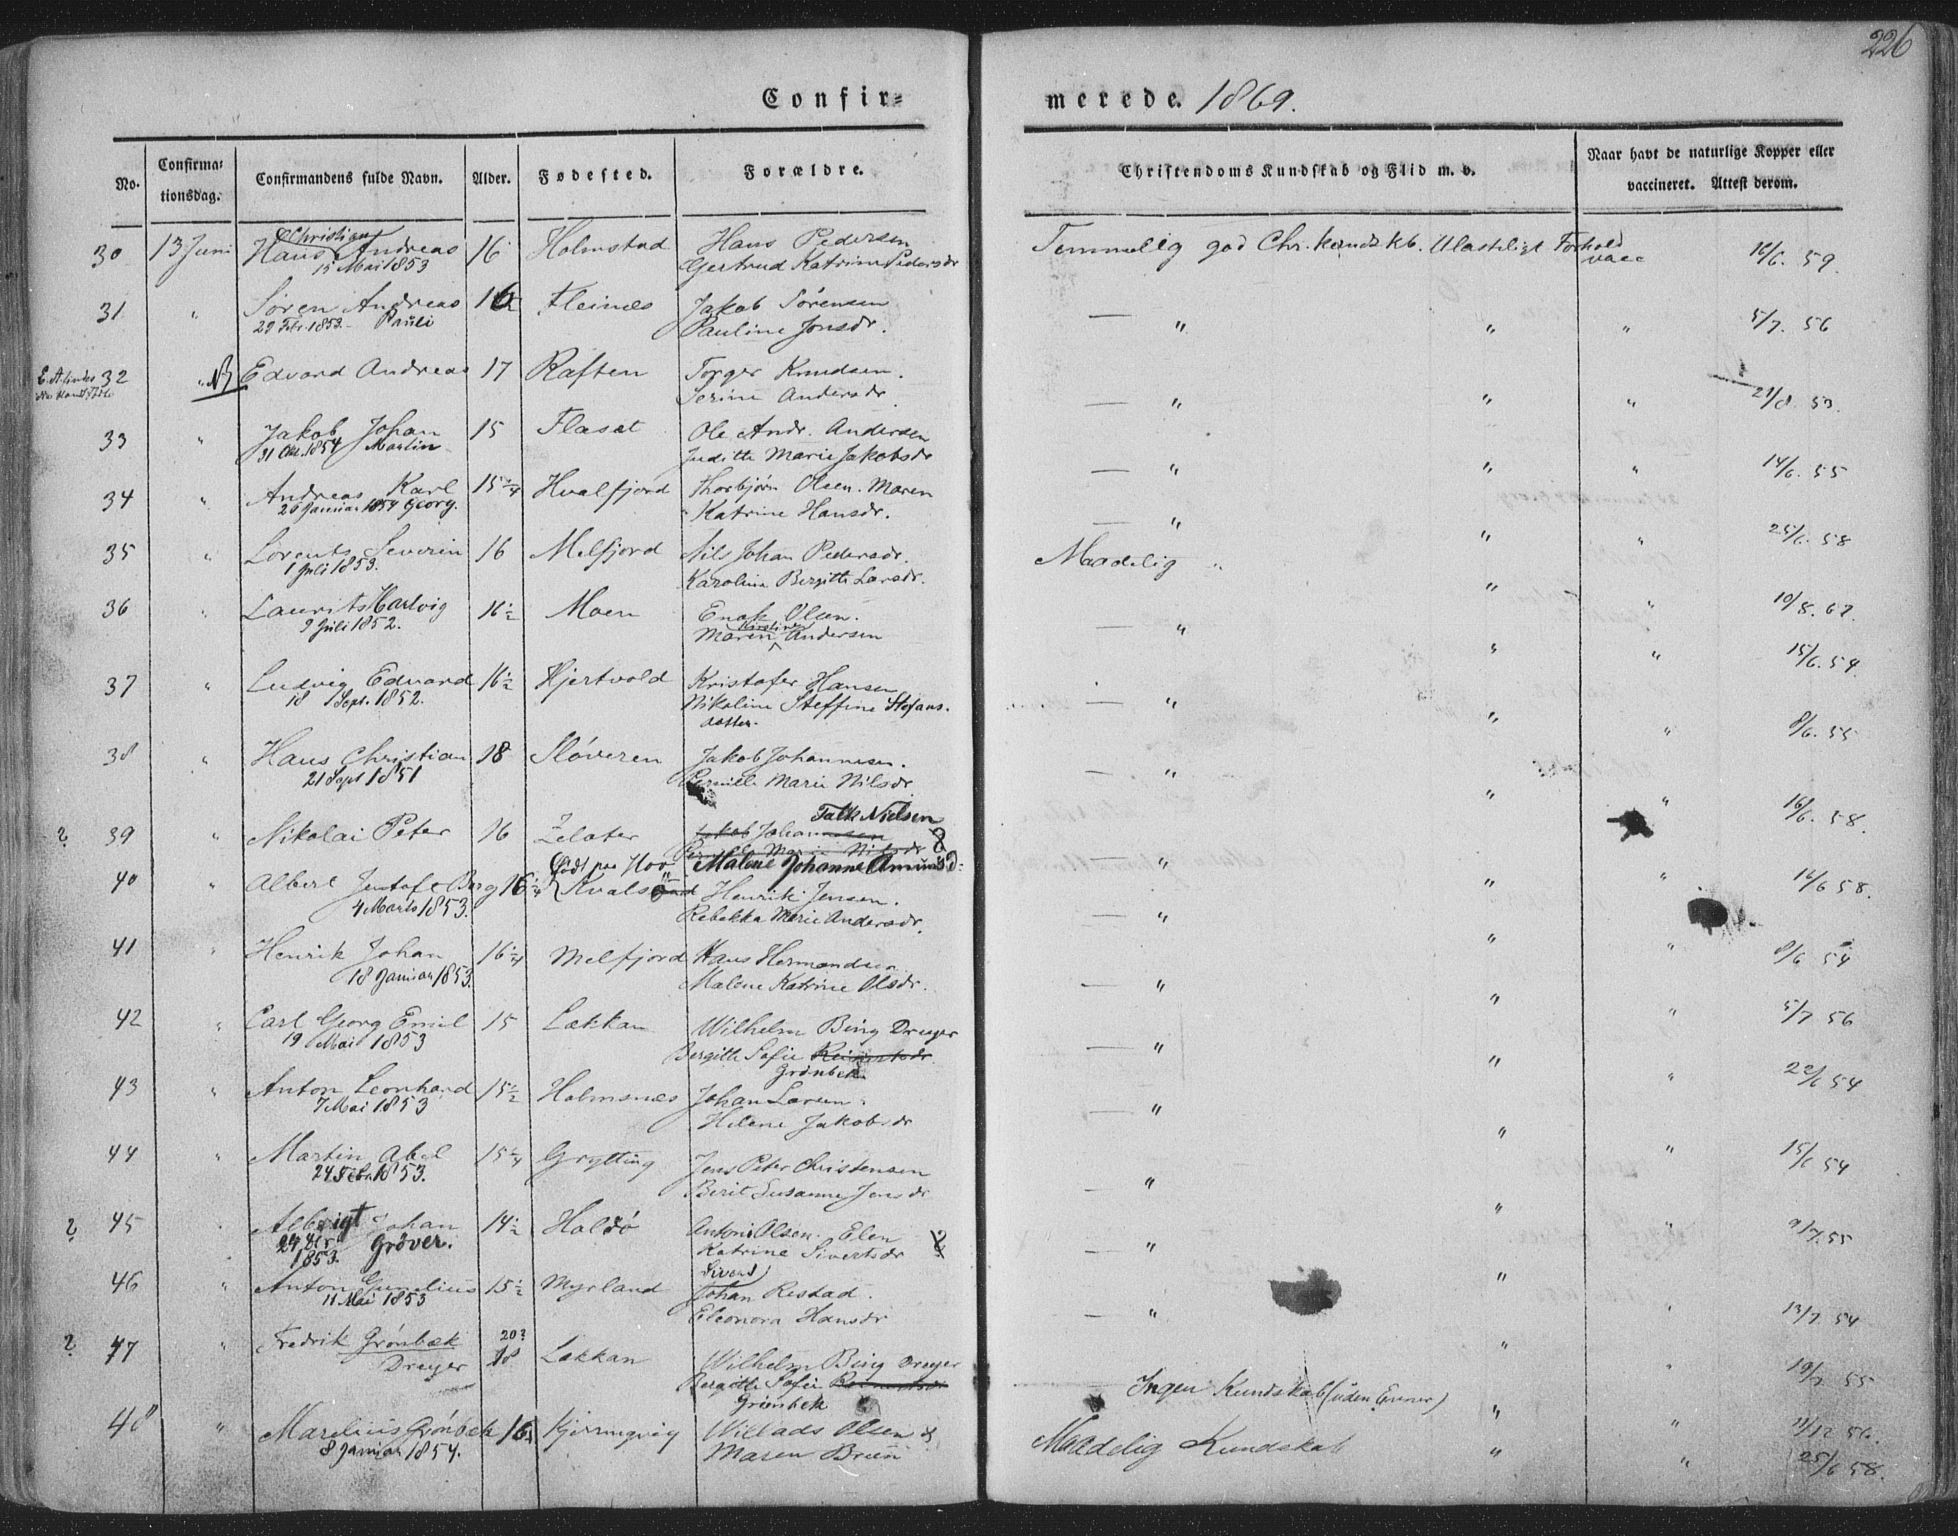 226
Confir=
merede. 1869.
No.
Confirma=
tionsdag.
Confirmandens fulde Navn.
Alder.
Fødested.
Forældre.
Christendoms Kundskab og Flid m. v.
Naar havt de naturlige Kopper eller
vaccineret. Attest derom.
30 13 Juni Hans Christian Andreas 16 Holmstad Hans Pedersen Temmelig god Chr. kundskb. Ulasteligt Forhold vacc 16/6. 59.
15 Mai 1853 Gertrud Katrine Pedersdr
31 " Søren Andreas 16 Fleinæs Jakob Sørensen — " " " 5/7. 56
29 Febr. 1853. Pauli Pauline Jonsdr.
32 " NB Edvard Andreas 17 Raften Torger Knudsen. — " " " 21/8 53.
Serine Andersdr
33 " Jakob Johan 15 Flasæt Ole Andr. Andersen — " " " 14/6. 55
31 Okt. 1854 Martin Judith Marie Jakobsdr
34 " Andreas Karl 15 1/4 Hvalfjord Thorbjørn Olsen. Maren — " " " 25/6. 58
26 Januar 1854 Georg. Katrine Hansdr.
35 " Lorents Severin 16 Melfjord Nils Johan Pedersdr. Maadelig " " " 10/8. 67.
1 Juli 1853. Karoline Bergitte Larsdr.
36 " Laurits Hartvig 16 1/2 Moen Enok Olsen. — " " " 15/6. 54.
9 Juli 1852. Maren Kirstine Andersen
37 " Ludvig Edvard 16 1/2 Hjertvold Kristofer Hansen — " " " 8/6. 55
18 Sept. 1852. Nikoline Steffine Stefans.
datter.
38 " Hans Christian 18 Sløveren Jakob Johannesen. — " " " 16/6. 58.
21 Sept 1851 Pernille Marie Nilsdr.
Falk Nielsen
? 39 " Nikolai Peter 16 Zelater Jakob Johannesen — " " " 16/6 58.
Pernille Marie Nilsdr
Født paa Hov Malene Johanne Amunds D.
40 " Albert Justofe Berg 16 1/4 Kvalsund Henrik Jensen. — " " " 8/6 54
4 Marts 1853. Rebekka Marie Andersdr.
41 " Henrik Johan 16 1/4 Melfjord Hans Hermandsen — " " " 5/7 56
18 Januar 1853. Malene Katrine Olsdr.
42 " Carl Georg Emil 15 Lækkan Wilhelm Bing Dreyer — " " " 22/6 54
19 Mai 1853 Bergitte Sofie Reinertsdr.
Grønbek
43 " Anton Leonhard 15 1/2 Holmsnæs Johan Larsen. — " " " 15/6 54
7 Mai 1853 Helene Jakobsdr
44 " Martin Abel 15 1/4 Grytting Jens Peter Christensen — " " " 9/7. 55
24 Febr. 1853. Berit Susanne Jensdr
? 45 Albrigt Johan 14 1/2 Haldø Anton Olsen. Elen — " " " 13/7. 54
Grøver. Katrine Sivertsdr
1853.
46 " Anton Gunelius 15 1/2 Myrland Sivert Johan Restad. — " " " 19/7 55
11 Mai 1853 Eleonora Hansdr
? 47 " Fredrik Grønbæk 20? 18 Lækkan Wilhelm Bing Dreyer Ingen Kundskab (uden Evner) " " 11/12 56.
Dreyer Bergitte Sofie Reinertsdr
Grønbek
48 " Marelius Grønbek 16 Kjerringvig Willads Olsen & Maadelig Kundskab " " 25/6 58.
8 Januar 1854. Maren Bruun